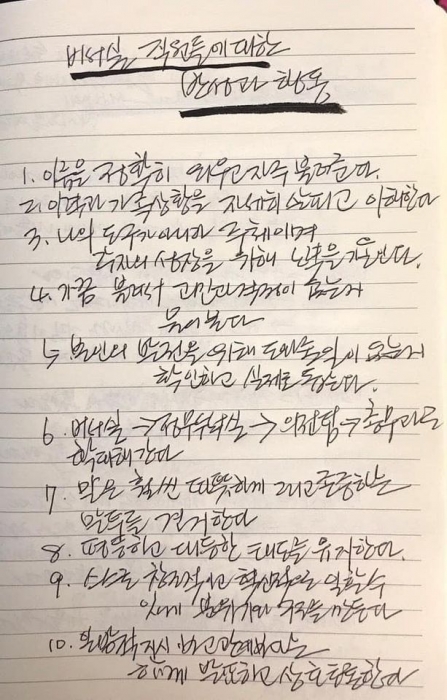 비서실 직원들에 대한
반성과 행동
1. 이름을 정확히 외우고 자주 불러준다.
2. 이력과 가족상황을 자세히 살피고 이해한다
3. 나의 도구가 아니라 주체이며
각자의 성장을 위해 노력을 기울인다.
4. 가끔 불러서 고민과 걱정이 없는지
물어본다
5. 본인의 발전을 위해 도와줄 일이 없는지
확인하고 실제로 돕는다.
6. 비서실 → 정무부시장실 → 의전팀 → 총무과로
확대해간다
7. 말은 훨씬 따뜻하게 그리고 존중하는
말투를 견지한다
8. 평등하고 대등한 태도를 유지한다.
9. 스스로 창조적이고 혁신적으로 일할 수
있게 분위기와 구조를 만든다
10. 일방적 지시 보고 관계보다는
함께 발표하고 상호 토론한다